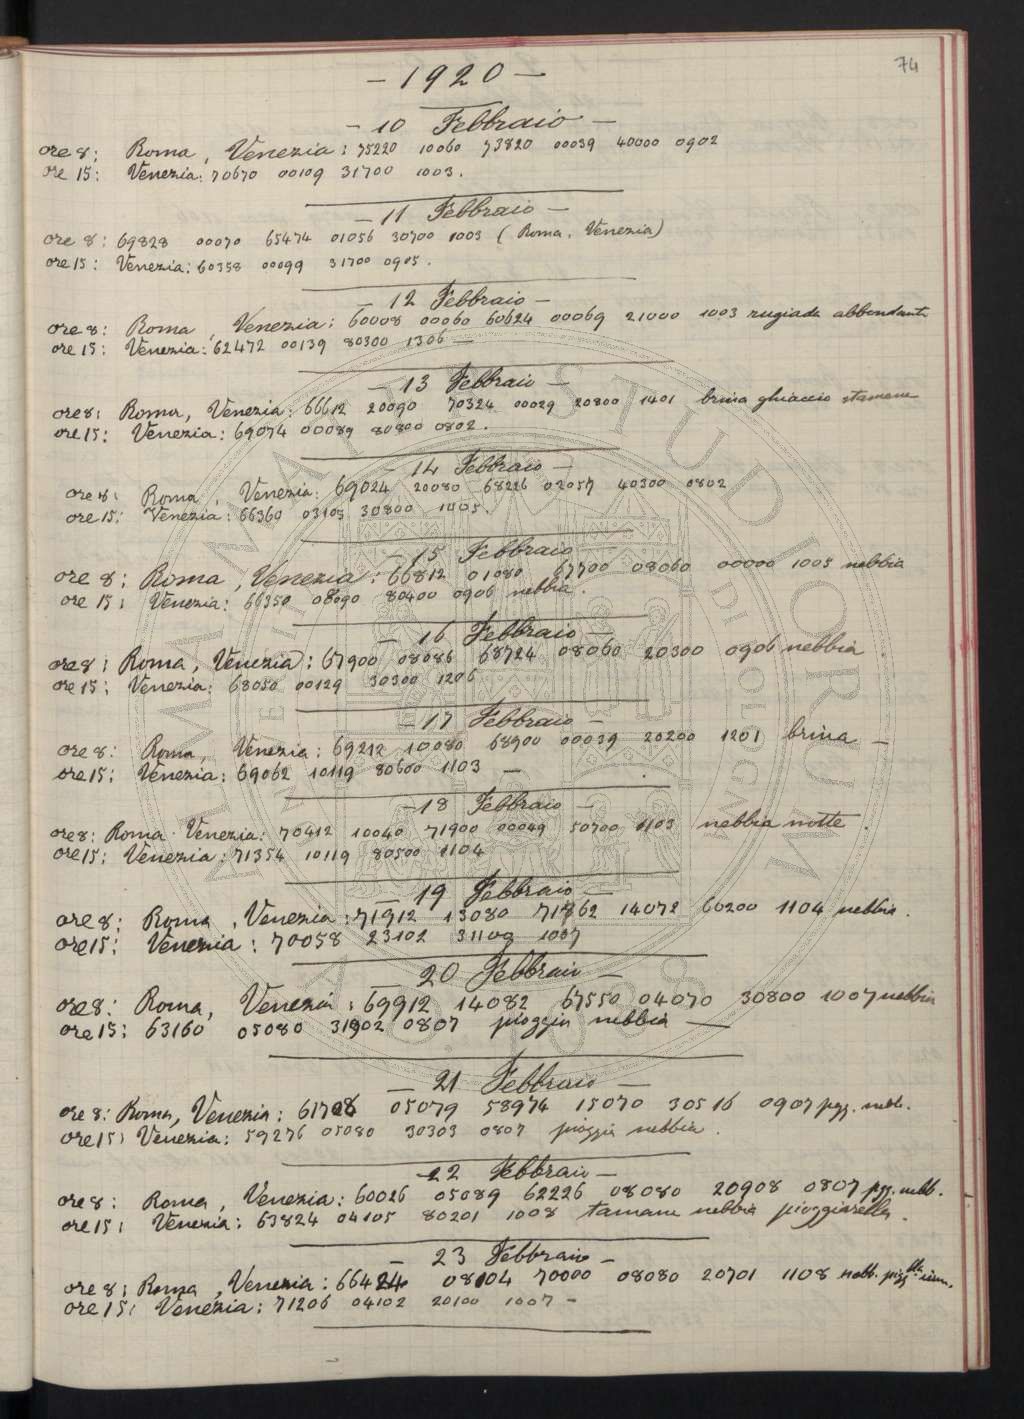 74
— 1920 —
— 10 Febbraio —
ore 8: Roma, Venezia: 75220 10060 73820 00039 40000 0902
ore 15: Venezia: 70670 00109 31700 1003.
— 11 Febbraio —
ore 8: 69828 00070 65474 01056 30700 1003 (Roma, Venezia)
ore 15: Venezia: 60358 00099 31700 0905.
— 12 Febbraio —
ore 8: Roma, Venezia: 60008 00060 60624 00069 21000 1003 rugiada abbondante
ore 15: Venezia: 62472 00139 80300 1306 —
— 13 Febbraio —
ore 8: Roma, Venezia: 66612 20090 70324 00029 20800 1401 brina ghiaccio stamane
ore 15: Venezia: 69074 00089 80800 0802.
— 14 Febbraio —
ore 8: Roma, Venezia: 69024 20080 68226 02057 40300 0802
ore 15: Venezia: 66360 03103 30800 1005.
— 15 Febbraio —
ore 8: Roma, Venezia: 66812 01080 67700 08060 00000 1005 nebbia
ore 15: Venezia: 66350 08090 80400 0906 nebbia.
— 16 Febbraio —
ore 8: Roma, Venezia: 67900 08086 68724 08060 20300 0906 nebbia
ore 15: Venezia: 68050 00129 30300 1206
— 17 Febbraio —
ore 8: Roma, Venezia: 69212 10080 68900 00039 20200 1201 brina —
ore 15: Venezia: 69062 10119 80600 1103 —
— 18 Febbraio —
ore 8: Roma Venezia: 70412 10040 71900 00049 50700 1103 nebbia notte.
ore 15: Venezia: 71354 10119 80500 1104
— 19 Febbraio —
ore 8: Roma, Venezia: 71912 13080 71762 14072 60200 1104 nebbia.
ore 15: Venezia: 70058 23102 31109 1007
— 20 Febbraio —
ore 8: Roma, Venezia: 69912 14082 67550 04070 30800 1007 nebbia
ore 15: 63160 05080 31902 0807 pioggia nebbia —
— 21 Febbraio —
ore 8: Roma, Venezia: 61708 05079 58974 15070 30516 0907 pgg. nebb.
ore 15: Venezia: 59276 05080 30303 0807 pioggia nebbia.
— 22 Febbraio —
ore 8: Roma, Venezia: 60026 05089 62226 08080 20908 0807 pgg. nebb.
ore 15: Venezia: 63824 04105 80201 1008 stamane nebbia pioggiarella.
— 23 Febbraio —
ore 8: Roma, Venezia: 66424 08104 70000 08080 20701 1108 nebb.
ore 15: Venezia: 71206 04102 20100 1007 —
ALMA MATER STUDIORUM
UNIVERSITÀ DI BOLOGNA
A.D. 1088